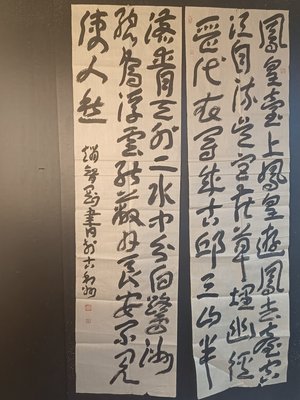 鳳皇臺上鳳皇遊鳳去臺空
江自流吳宮花草埋幽徑
晉代衣冠成古邱三山半
落青天外二水中分白鷺洲
總為浮雲能蔽日長安不見
使人愁
趙智書於古州